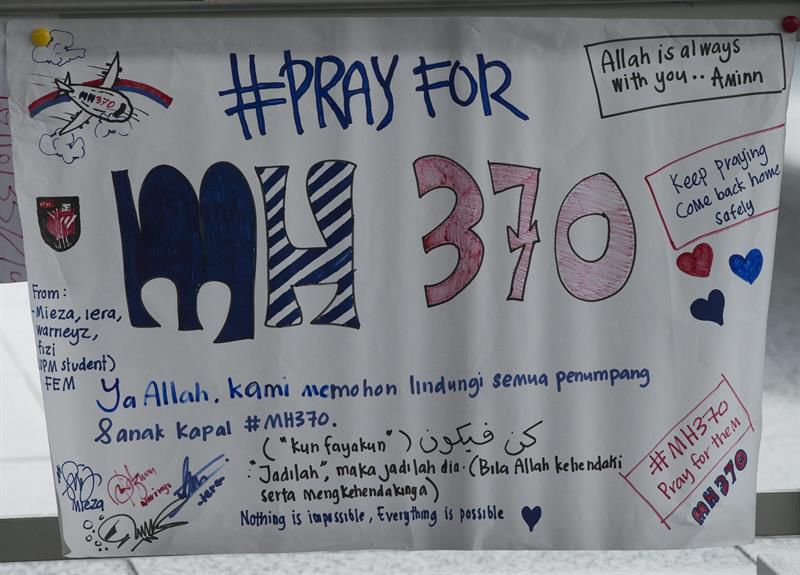 #PRAY FOR
MH 370
MH370
Allah is always
with you.. Aminn
Keep praying
Come back home
safely
From:
- Mieza, iera,
warneyz,
fizi
(UPM student)
FEM
Ya Allah, kami memohon lindungi semua penumpang
& anak kapal #MH370.
("Kun fayakun") كن فيكون
"Jadilah", maka jadilah dia. (Bila Allah kehendaki
serta mengkehendakinya)
Nothing is impossible, Everything is possible
#MH370
Pray for them
MH 370
Mieza